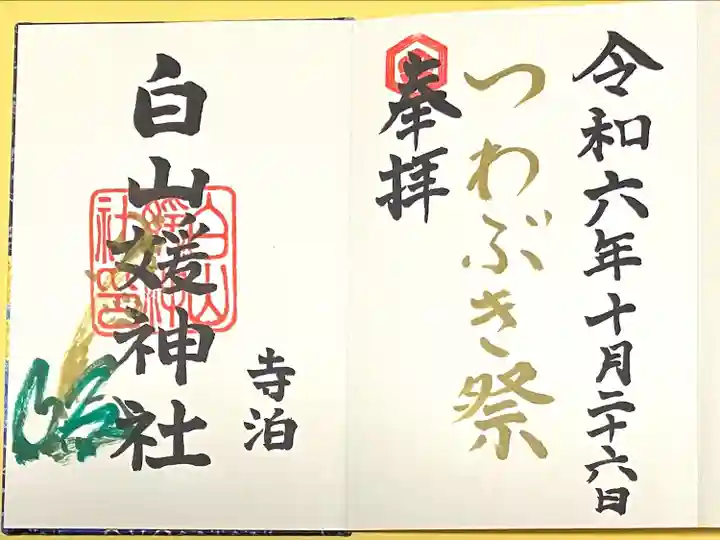 令和六年十月二十六日
つわぶき祭
奉拝
寺泊
白山媛神社